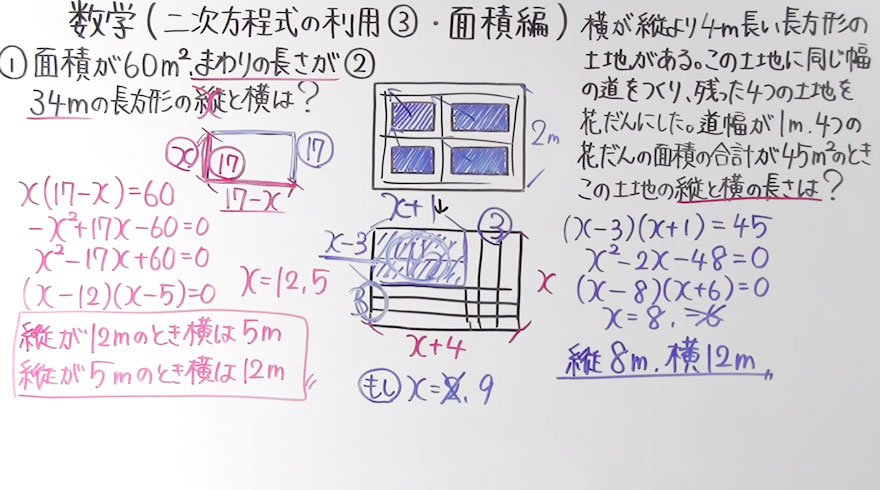 数学(二次方程式の利用③・面積編)
① 面積が60m²、まわりの長さが
34mの長方形の縦と横は?
x
x
17
17
17-x
x(17-x)=60
-x²+17x-60=0
x²-17x+60=0
(x-12)(x-5)=0
x=12,5
縦が12mのとき横は5m
縦が5mのとき横は12m
②
横が縦より4m長い長方形の
土地がある。この土地に同じ幅
の道をつくり、残った4つの土地を
花だんにした。道幅が1m、4つの
花だんの面積の合計が45m²のとき
この土地の縦と横の長さは?
2m
x+1
③
x-3
3
x
x+4
もし x=2,9
(x-3)(x+1)=45
x²-2x-48=0
(x-8)(x+6)=0
x=8,-6
縦8m、横12m